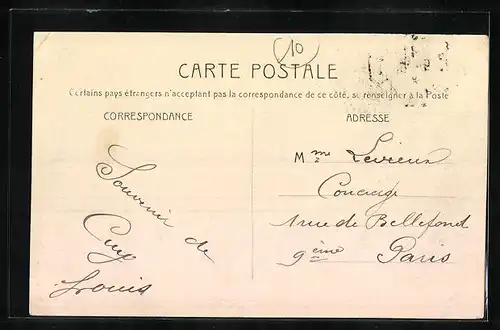 10
CARTE POSTALE
Certains pays étrangers n'acceptant pas la correspondance de ce côté, se renseigner à la Poste
CORRESPONDANCE
ADRESSE
Souvenir de
Louis
Mme
Concierge
1 rue de Bellefond
9ème Paris